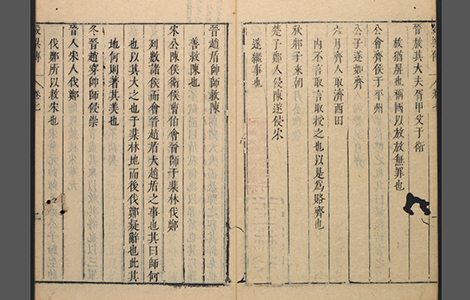 晉放其大夫胥甲父于衛
放猶屏也稱國以放放無罪也
公會齊侯于平州
公子遂如齊
六月齊人取濟西田
內不言取言取授之也以是為賂齊也
秋邾子來朝
楚子鄭人侵陳遂侵宋
遂繼事也
晉趙盾帥師救陳
善救陳也
宋公陳侯衛侯曹伯會晉師于棐林伐鄭
列數諸侯而會晉趙盾大趙盾之事也其曰師何
也以其大之也于棐林地而後伐鄭疑辭也此其
地何則著其美也
冬晉趙穿帥師侵崇
晉人宋人伐鄭
伐鄭所以救宋也